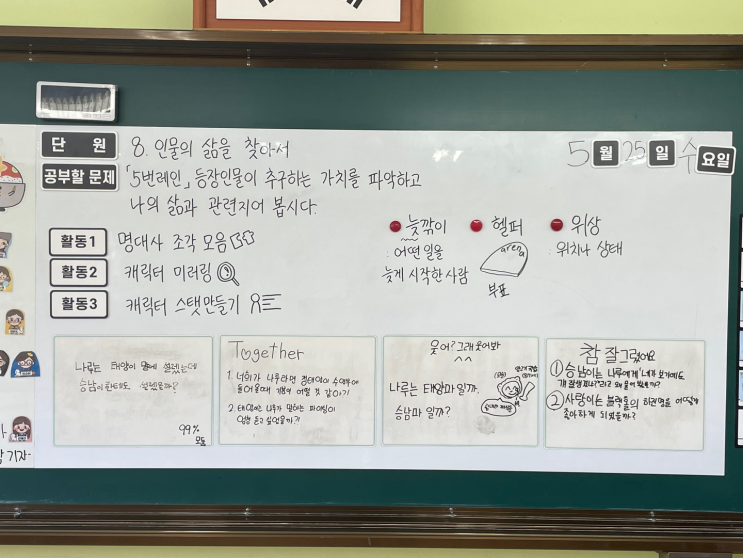 단 원
8. 인물의 삶을 찾아서
5월 25일 수요일
공부할 문제
「5번레인」 등장인물이 추구하는 가치를 파악하고
나의 삶과 관련지어 봅시다.
활동1
명대사 조각 모음
활동2
캐릭터 미러링
활동3
캐릭터 스탯만들기
늦깎이
: 어떤 일을
늦게 시작한 사람
헬퍼
arena
부표
위상
: 위치나 상태
나루는 태양이 말에 설렜는데
승남이한테도 설렜을까?
99%
모둠
Together
1. 너희가 나루라면 경태양이 수영부에
들어올때 기분이 어떨 것 같아?!
2. 태양이는 나루가
엄청 듣고 싶었을까?!
웃어? 그래 웃어봐
^^
나루는 태양파 일까.
승남파 일까?
참 잘그렸어요
① 승남이는 나루에게 '내가 보기에도
왜 물어 봤을까?
② 사랑이는 블랙홀의 하권명을 어떻게
좋아하게 되었을까?
기자-